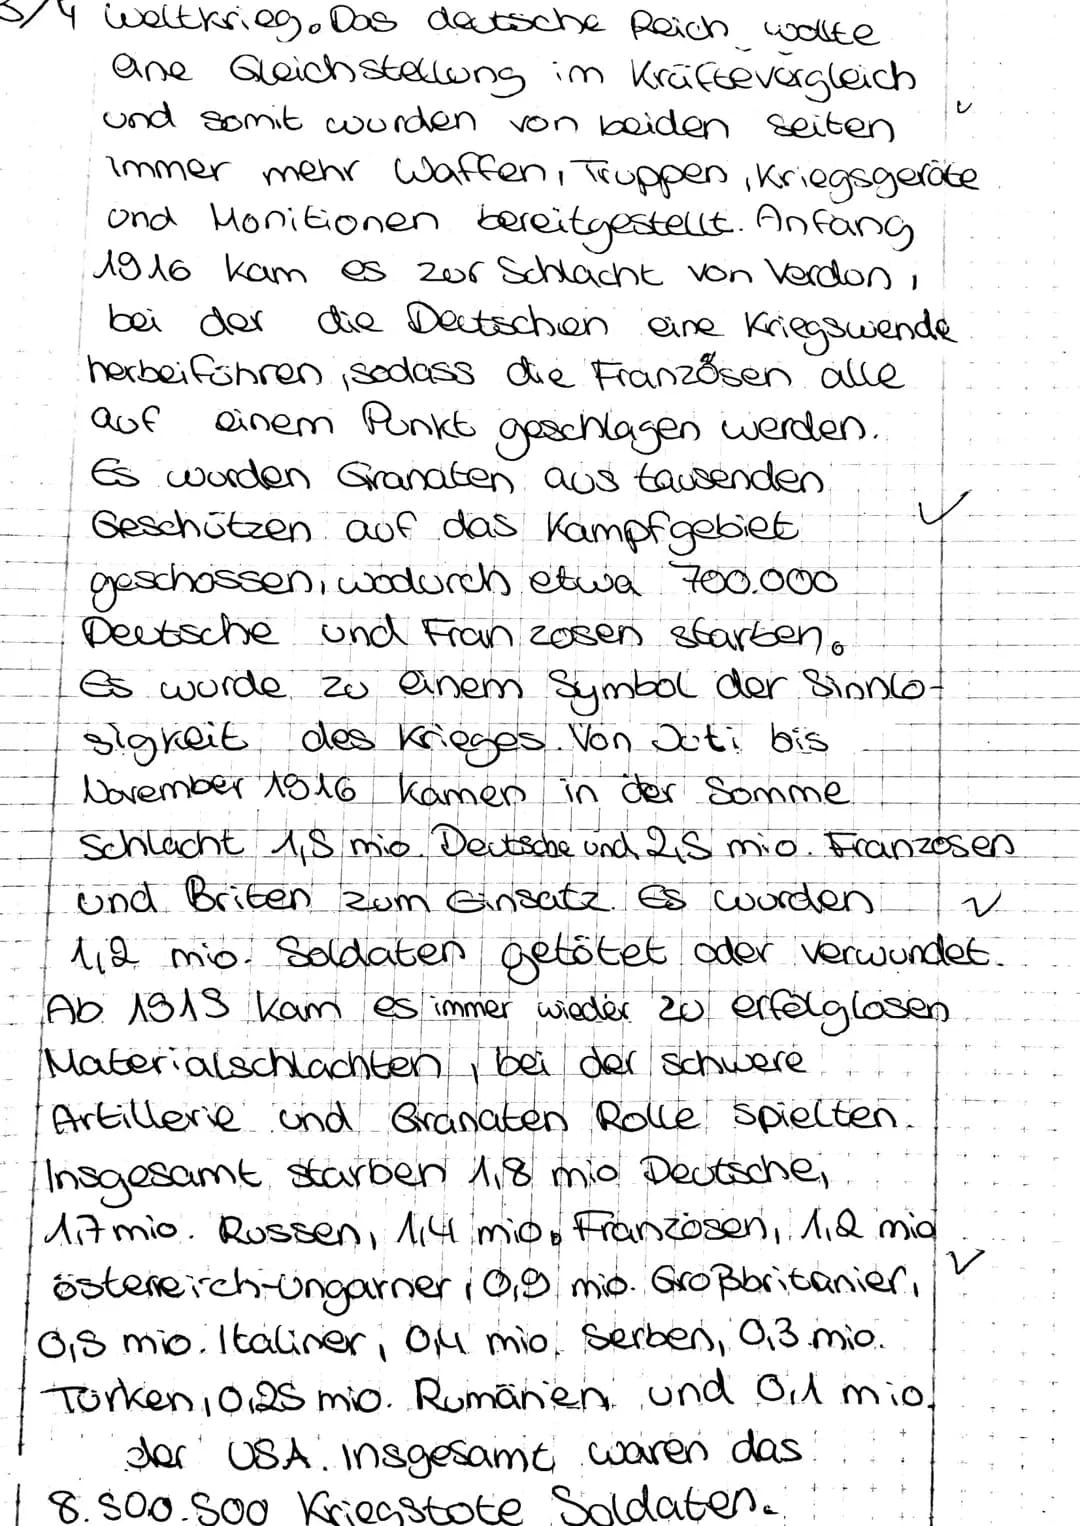 3/4 Weltkrieg. Das deutsche Reich wollte
eine Gleichstellung im Kräftevergleich
und somit wurden von beiden Seiten
immer mehr Waffen, Truppen, Kriegsgeräte
und Monitionen bereitgestellt. Anfang
1916 kam es zur Schlacht von Verdon,
bei der die Deutschen eine Kriegswende
herbeiführen, sodass die Franzosen alle
auf einem Punkt geschlagen werden.
Es wurden Granaten aus tausenden
Geschützen auf das Kampfgebiet
geschossen, wodurch etwa 700.000
Deutsche und Franzosen starben.
Es wurde zu einem Symbol der Sinnlo-
sigkeit des Krieges. Von Juli bis
November 1916 kamen in der Somme
Schlacht 1,5 mio. Deutsche und 2,5 mio. Franzosen
und Briten zum Einsatz. Es wurden
1,2 mio. Soldaten getötet oder verwundet.
Ab 1915 kam es immer wieder zu erfolglosen
Materialschlachten, bei der schwere
Artillerie und Granaten Rolle spielten.
Insgesamt starben 1,8 mio Deutsche,
1,7 mio. Russen, 1,4 mio. Franzosen, 1,2 mio
österreich-ungarner, 0,9 mio. Großbritanier,
0,5 mio. Italiner, 0,4 mio. Serben, 0,3 mio.
Türken, 0,25 mio. Rumänien und 0,1 mio.
der USA. Insgesamt waren das
8.500.500 Kriegstote Soldaten.